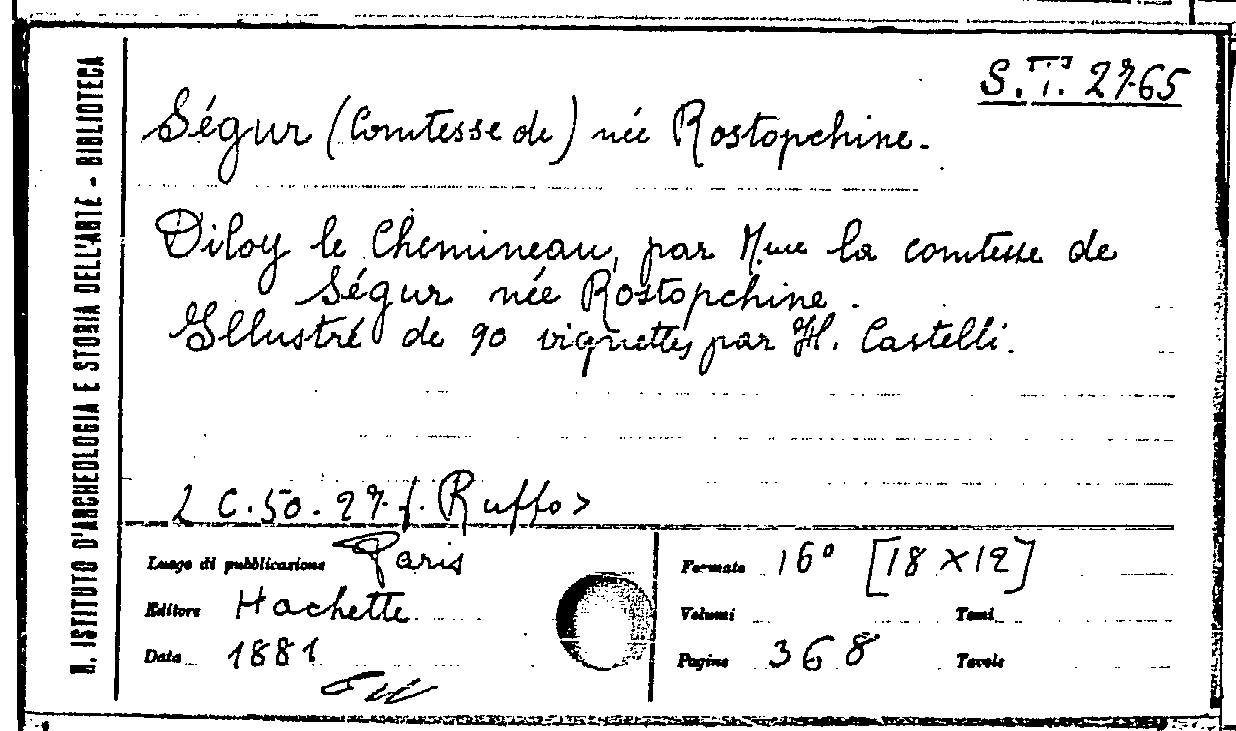 S.T. 2765
Ségur (Comtesse de) née Rostopchine.
Diloy le Chemineau, par Mme la comtesse de
Ségur née Rostopchine.
Illustré de 90 vignettes par H. Castelli.
< C.50.27.f. Ruffo >
Luogo di pubblicazione Paris
Editore Hachette
Data 1881
Formato 16° [18 x 12]
Volumi Tomi
Pagine 368 Tavole
R. ISTITUTO D'ARCHEOLOGIA E STORIA DELL'ARTE - BIBLIOTECA